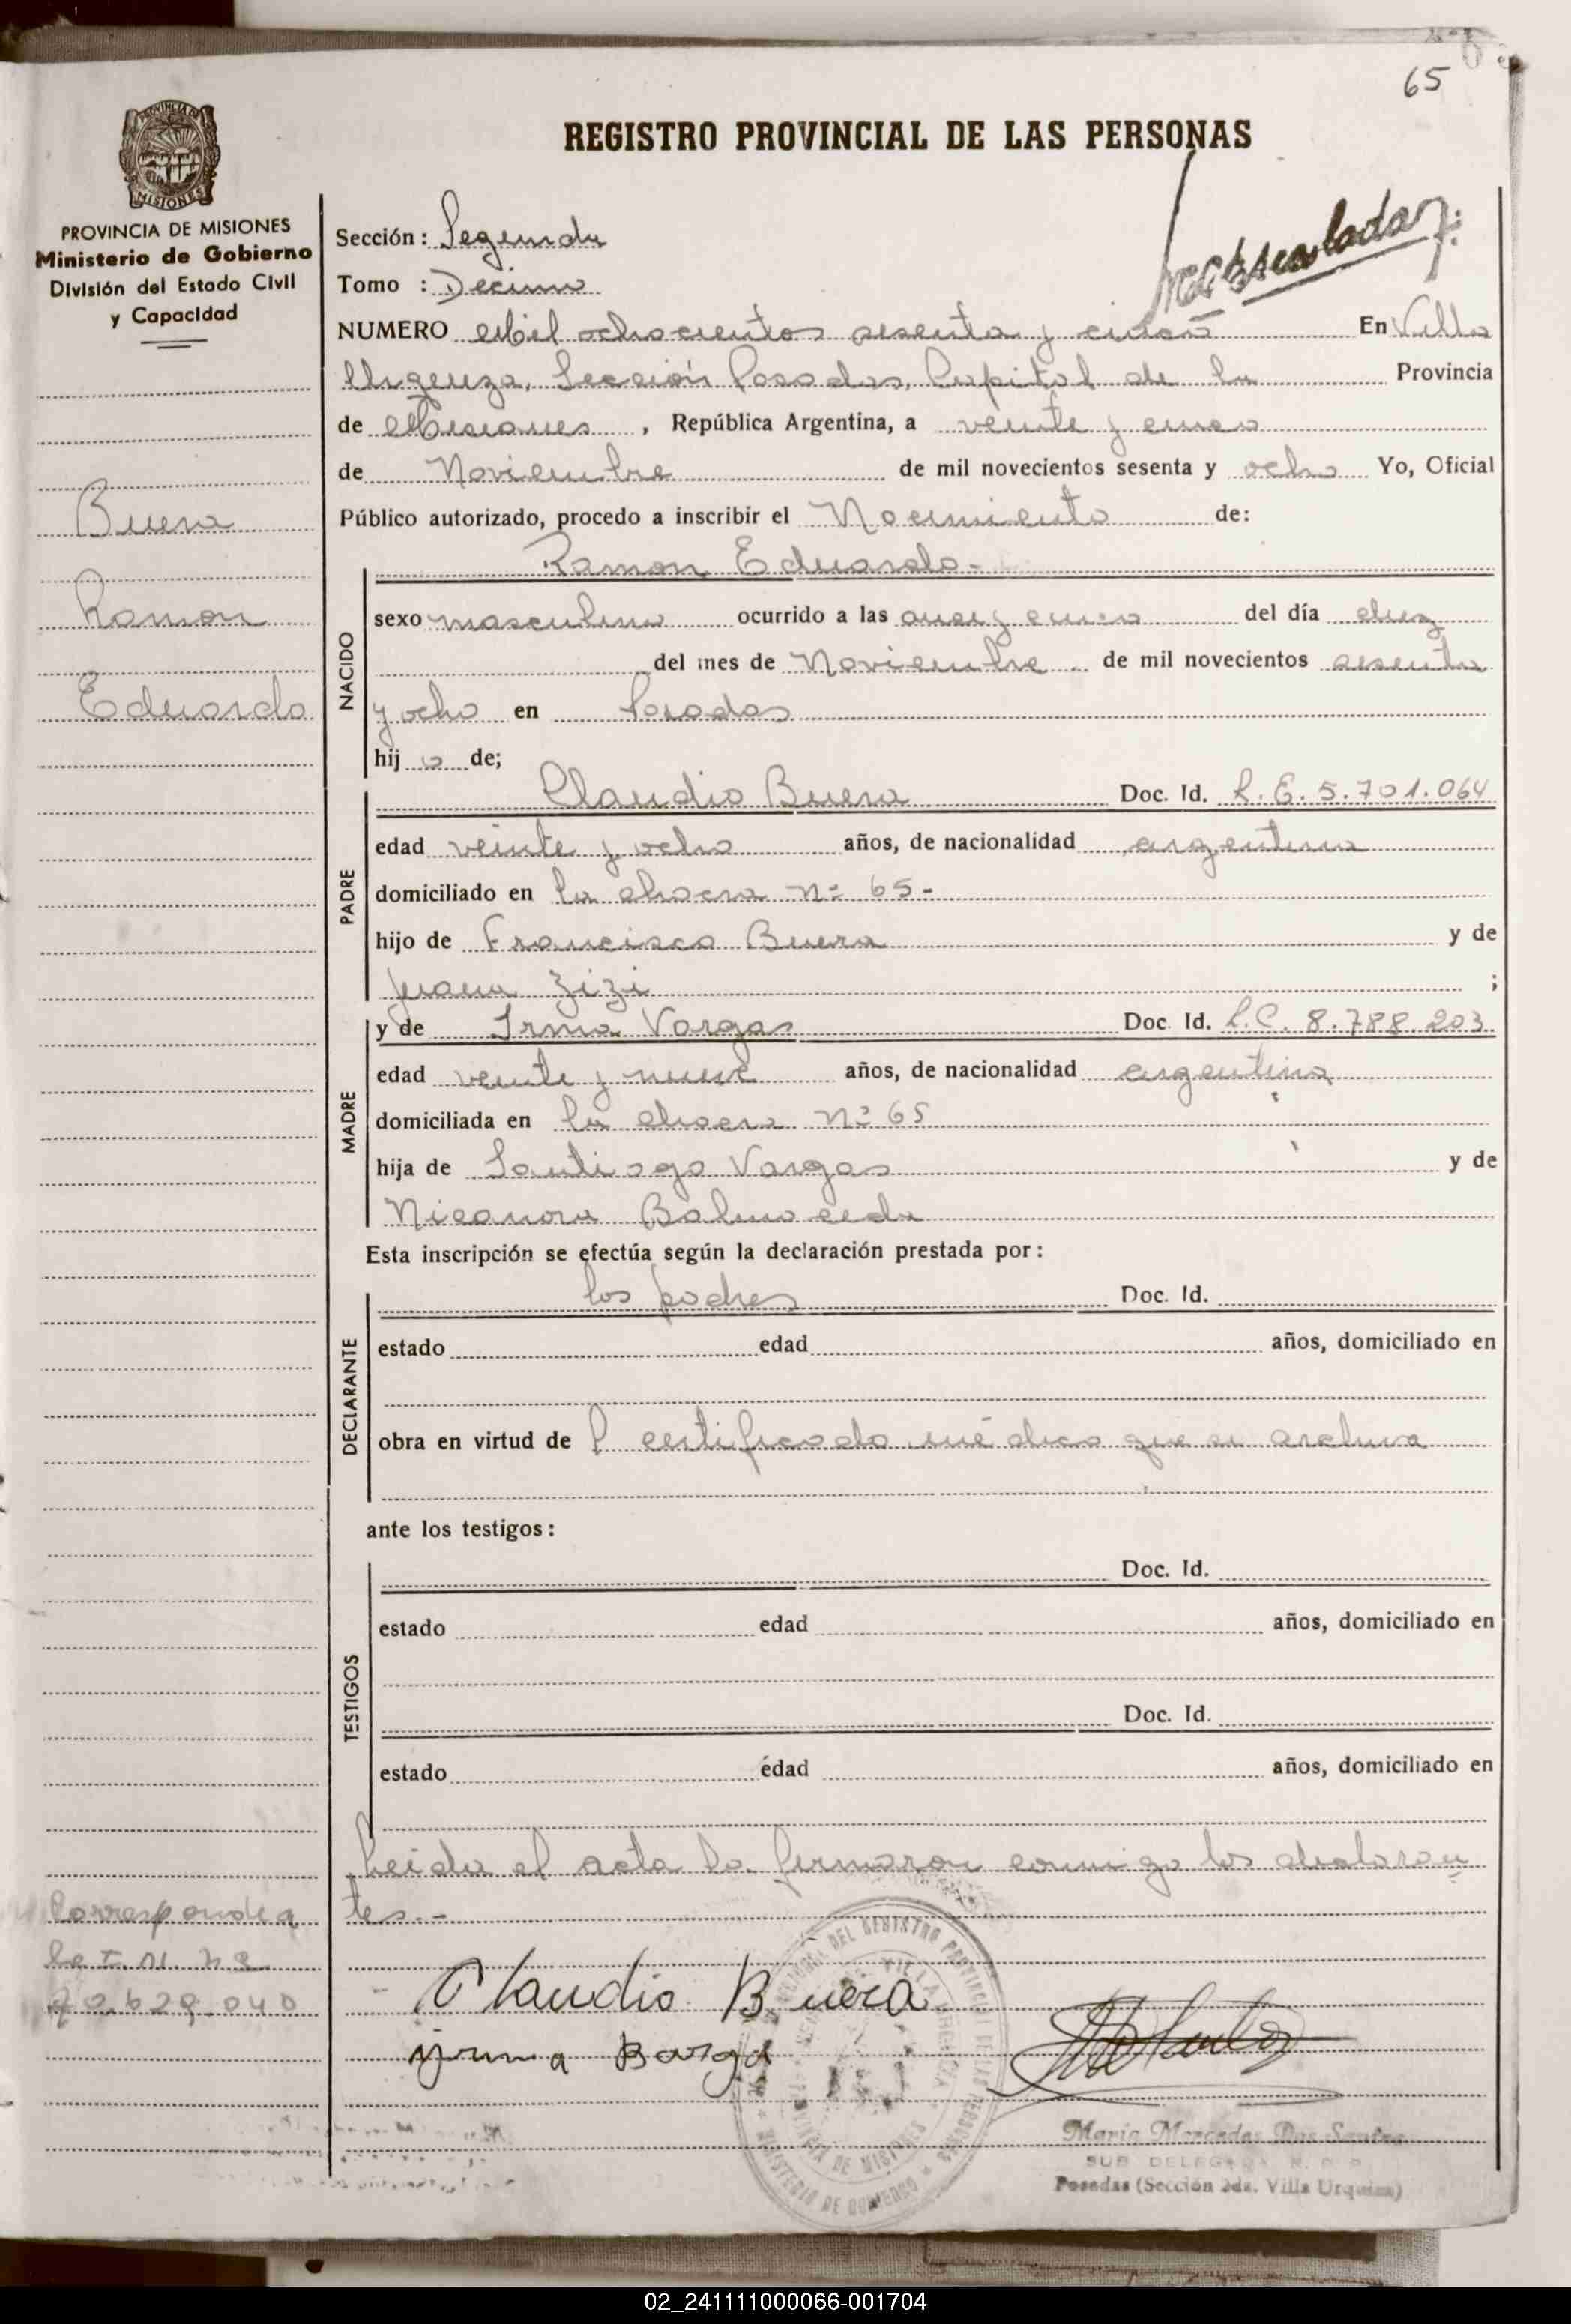 65
REGISTRO PROVINCIAL DE LAS PERSONAS
PROVINCIA DE MISIONES
MISIONES
PROVINCIA DE MISIONES
Ministerio de Gobierno
División del Estado Civil
y Capacidad
Buera
Ramon
Eduardo
Corresponde a
040
Sección: Segunda
Tomo : Decimo
NUMERO Mil ochocientos sesenta y cinco En Villa
Urquiza, Sección Posadas, Capital de la Provincia
de Misiones, República Argentina, a veinte y cinco
de Noviembre de mil novecientos sesenta y ocho Yo, Oficial
Público autorizado, procedo a inscribir el Nacimiento de:
Ramon Eduardo-
NACIDO
sexo masculino ocurrido a las y cinco del día diez
del mes de Noviembre de mil novecientos sesenta
y ocho en Posadas
hij o de;
PADRE
Claudio Buera Doc. Id. L.E. 5.701.064
edad veinte y ocho años, de nacionalidad argentina
domiciliado en la chacra Nº 65-
hijo de Francisco Buera y de
Juana Zizi ;
MADRE
y de Irma Vargas Doc. Id. L.C. 8.788.203
edad veinte y nueve años, de nacionalidad argentina
domiciliada en la chacra Nº 65
hija de Santiago Vargas y de
Nicanora Balmaceda
Esta inscripción se efectúa según la declaración prestada por:
DECLARANTE
los padres Doc. Id.
estado edad años, domiciliado en
obra en virtud de l certificado médico que se archiva
ante los testigos:
TESTIGOS
Doc. Id.
estado edad años, domiciliado en
Doc. Id.
estado edad años, domiciliado en
Leida el acta la firmaron conmigo los declaran
tes.-
Claudio Buera
yrma Barga
DEL REGISTRO PROVINCIAL DE LAS PERSONAS
MINISTERIO DE GOBIERNO
PROVINCIA DE MISIONES
Maria Mercedes Dos Santos
SUB DELEGADA R. P. P.
Posadas (Sección 2da. Villa Urquiza)
02_241111000066-001704